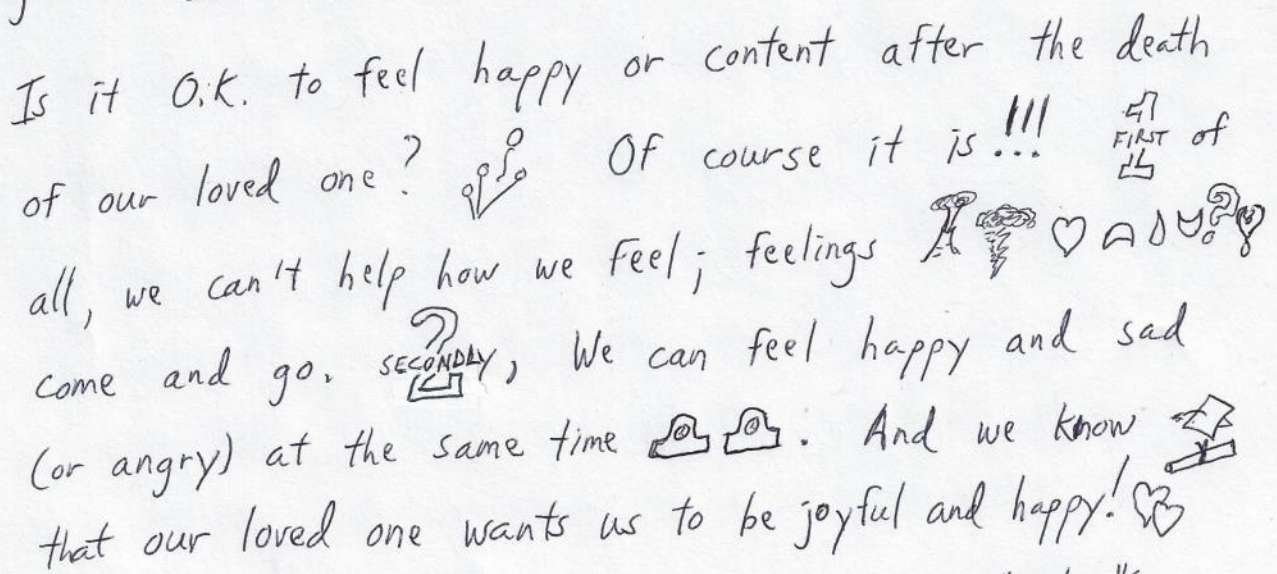 Is it O.K. to feel happy or content after the death
of our loved one? Of course it is!!! FIRST of
all, we can't help how we feel; feelings
come and go. SECONDLY, We can feel happy and sad
(or angry) at the same time. And we know
that our loved one wants us to be joyful and happy!